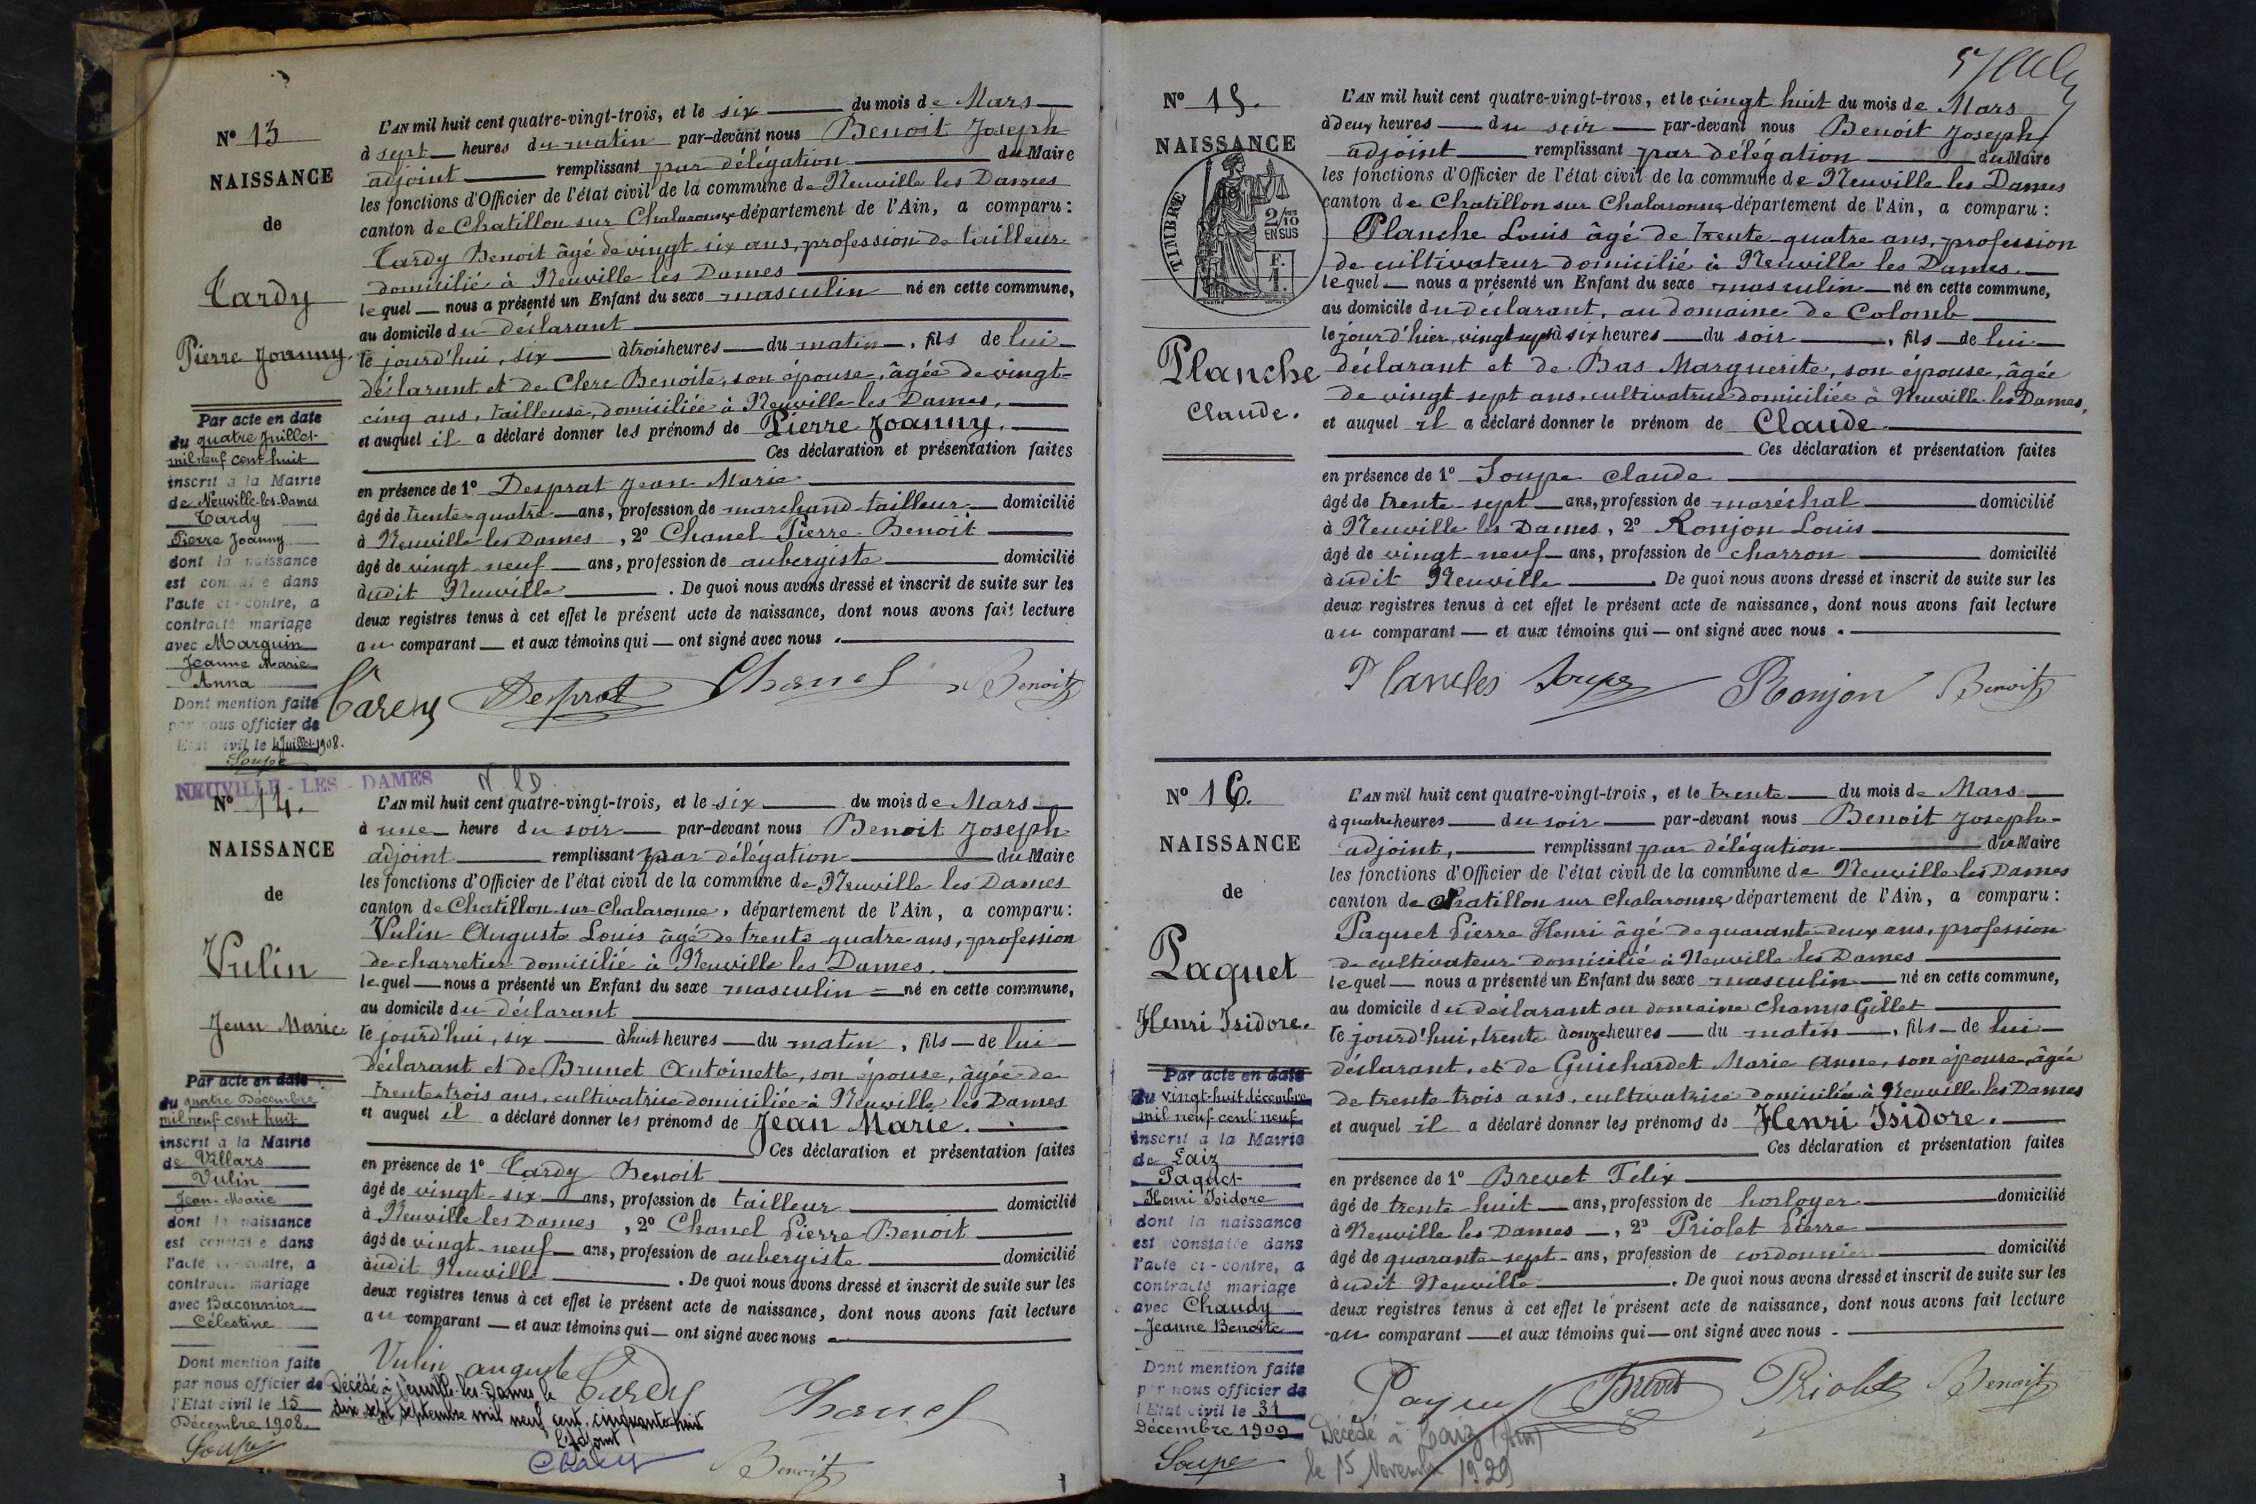 Nº 13
NAISSANCE
de
Tardy
Pierre Joanny.
Par acte en date
du quatre Juillet
mil neuf cent huit
inscrit à la Mairie
de Neuville-les-Dames
Tardy
Pierre Joanny
dont la naissance
est constatée dans
l'acte ci-contre, a
contracté mariage
avec Marguin
Jeanne Marie
Anna
Dont mention faite
par nous officier de
l'Etat civil le 4 Juillet 1908.
Soupe
L'AN mil huit cent quatre-vingt-trois, et le six du mois de Mars
à sept heures du matin par-devant nous Benoit Joseph
adjoint remplissant par délégation du Maire
les fonctions d'Officier de l'état civil de la commune de Neuville les Dames
canton de Chatillon sur Chalaronne département de l'Ain, a comparu :
Tardy Benoit âgé de vingt six ans, profession de tailleur
domicilié à Neuville les Dames
lequel nous a présenté un Enfant du sexe masculin né en cette commune,
au domicile du déclarant
le jourd'hui, six à trois heures du matin, fils de lui
déclarant et de Clerc Benoite, son épouse, âgée de vingt-
cinq ans, tailleuse, domiciliée à Neuville les Dames,
et auquel il a déclaré donner les prénoms de Pierre Joanny.
Ces déclaration et présentation faites
en présence de 1º Desprat Jean Marie
âgé de trente-quatre ans, profession de marchand tailleur domicilié
à Neuville les Dames, 2º Chanel Pierre Benoit
âgé de vingt-neuf ans, profession de aubergiste domicilié
audit Neuville. De quoi nous avons dressé et inscrit de suite sur les
deux registres tenus à cet effet le présent acte de naissance, dont nous avons fait lecture
au comparant et aux témoins qui ont signé avec nous.
Tardy Desprat Chanel Benoit
NEUVILLE-LES-DAMES
Nº 14.
NAISSANCE
de
Vulin
Jean Marie
Par acte en date
du quatre Décembre
mil neuf cent huit
inscrit à la Mairie
de Villars
Vulin
Jean-Marie
dont la naissance
est constatée dans
l'acte ci-contre, a
contracté mariage
avec Baconnier
Célestine
Dont mention faite
par nous officier de
l'Etat civil le 15
Décembre 1908.
Soupe
L'AN mil huit cent quatre-vingt-trois, et le six du mois de Mars
à une heure du soir par-devant nous Benoit Joseph
adjoint remplissant par délégation du Maire
les fonctions d'Officier de l'état civil de la commune de Neuville les Dames
canton de Chatillon sur Chalaronne, département de l'Ain, a comparu :
Vulin Auguste Louis âgé de trente quatre ans, profession
de charretier domicilié à Neuville les Dames.
lequel nous a présenté un Enfant du sexe masculin né en cette commune,
au domicile du déclarant
le jourd'hui, six à huit heures du matin, fils de lui
déclarant et de Brunet Antoinette, son épouse, âgée de
trente-trois ans, cultivatrice domiciliée à Neuville les Dames
et auquel il a déclaré donner les prénoms de Jean Marie.
Ces déclaration et présentation faites
en présence de 1º Tardy Benoit
âgé de vingt-six ans, profession de tailleur domicilié
à Neuville les Dames, 2º Chanel Pierre Benoit
âgé de vingt-neuf ans, profession de aubergiste domicilié
audit Neuville. De quoi nous avons dressé et inscrit de suite sur les
deux registres tenus à cet effet le présent acte de naissance, dont nous avons fait lecture
au comparant et aux témoins qui ont signé avec nous
Vulin auguste Tardy Chanel
Décédé à Neuville-les-Dames le
dix sept septembre mil neuf cent cinquante huit
L'Adjoint
Benoit
Nº 15.
NAISSANCE
de
TIMBRE
2/10
EN SUS
F.
1.
Planche
Claude.
L'AN mil huit cent quatre-vingt-trois, et le vingt huit du mois de Mars
à deux heures du soir par-devant nous Benoit Joseph
adjoint remplissant par délégation du Maire
les fonctions d'Officier de l'état civil de la commune de Neuville les Dames
canton de Chatillon sur Chalaronne département de l'Ain, a comparu :
Planche Louis âgé de trente-quatre ans, profession
de cultivateur domicilié à Neuville les Dames.
lequel nous a présenté un Enfant du sexe masculin né en cette commune,
au domicile du déclarant, au domaine de Colomb
le jourd'hier vingt sept à six heures du soir, fils de lui
déclarant et de Bas Marguerite, son épouse, âgée
de vingt sept ans, cultivatrice domiciliée à Neuville les Dames,
et auquel il a déclaré donner le prénom de Claude
Ces déclaration et présentation faites
en présence de 1º Soupe Claude
âgé de trente-sept ans, profession de maréchal domicilié
à Neuville les Dames, 2º Ronjon Louis
âgé de vingt-neuf ans, profession de charron domicilié
audit Neuville. De quoi nous avons dressé et inscrit de suite sur les
deux registres tenus à cet effet le présent acte de naissance, dont nous avons fait lecture
au comparant et aux témoins qui ont signé avec nous.
Planches Soupe Ronjon Benoit
Nº 16.
NAISSANCE
de
Paquet
Henri Isidore.
Par acte en date
du vingt-huit décembre
mil neuf cent neuf
inscrit à la Mairie
de Laiz
Paquet
Henri Isidore
dont la naissance
est constatée dans
l'acte ci-contre, a
contracté mariage
avec Chaudy
Jeanne Benoite
Dont mention faite
par nous officier de
l'Etat civil le 31
Décembre 1909
Soupe
L'AN mil huit cent quatre-vingt-trois, et le trente du mois de Mars
à quatre heures du soir par-devant nous Benoit Joseph
adjoint, remplissant par délégation du Maire
les fonctions d'Officier de l'état civil de la commune de Neuville les Dames
canton de Chatillon sur Chalaronne département de l'Ain, a comparu :
Paquet Pierre Henri âgé de quarante-deux ans, profession
de cultivateur domicilié à Neuville les Dames
lequel nous a présenté un Enfant du sexe masculin né en cette commune,
au domicile du déclarant au domaine Champ Gillet
le jourd'hui, trente à onze heures du matin, fils de lui
déclarant, et de Guichardet Marie Anne, son épouse, âgée
de trente-trois ans, cultivatrice domiciliée à Neuville les Dames
et auquel il a déclaré donner les prénoms de Henri Isidore.
Ces déclaration et présentation faites
en présence de 1º Brevet Félix
âgé de trente huit ans, profession de horloger domicilié
à Neuville les Dames, 2º Priolet Pierre
âgé de quarante-sept ans, profession de cordonnier domicilié
audit Neuville. De quoi nous avons dressé et inscrit de suite sur les
deux registres tenus à cet effet le présent acte de naissance, dont nous avons fait lecture
au comparant et aux témoins qui ont signé avec nous.
Paquet Brevet Priolet Benoit
Décédé à Laiz (Ain)
le 15 Novembre 1929